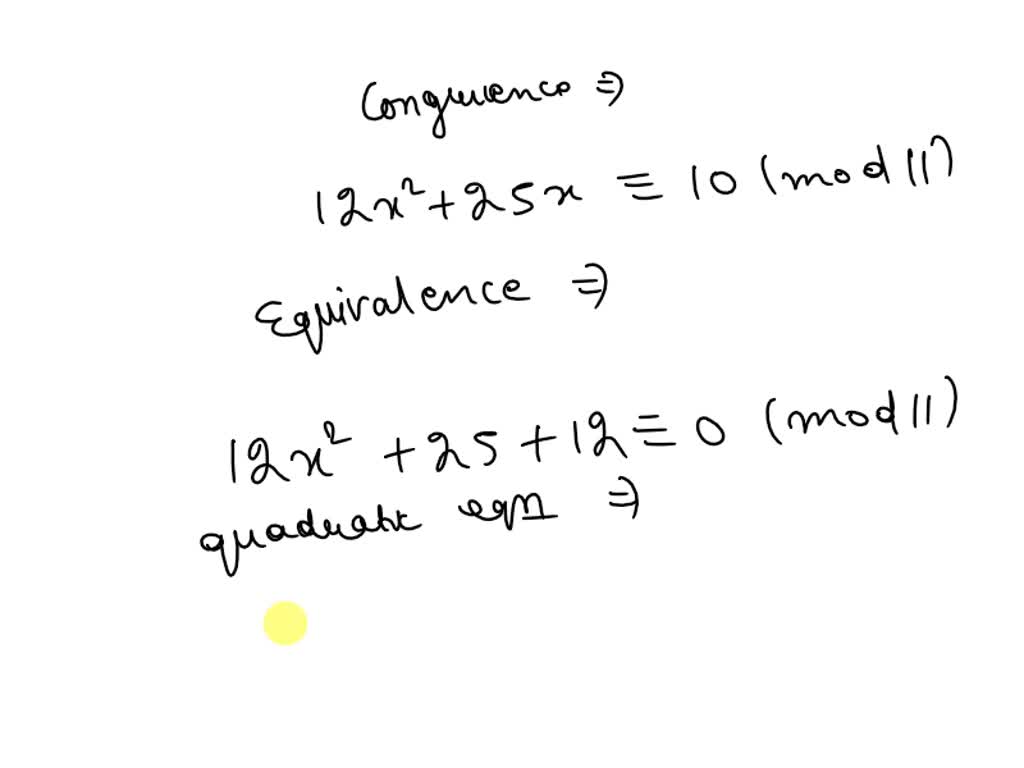 Congruence ⇒
12x² + 25x ≡ 10 (mod 11)
Equivalence ⇒
12x² + 25 + 12 ≡ 0 (mod 11)
quadratic eqn ⇒